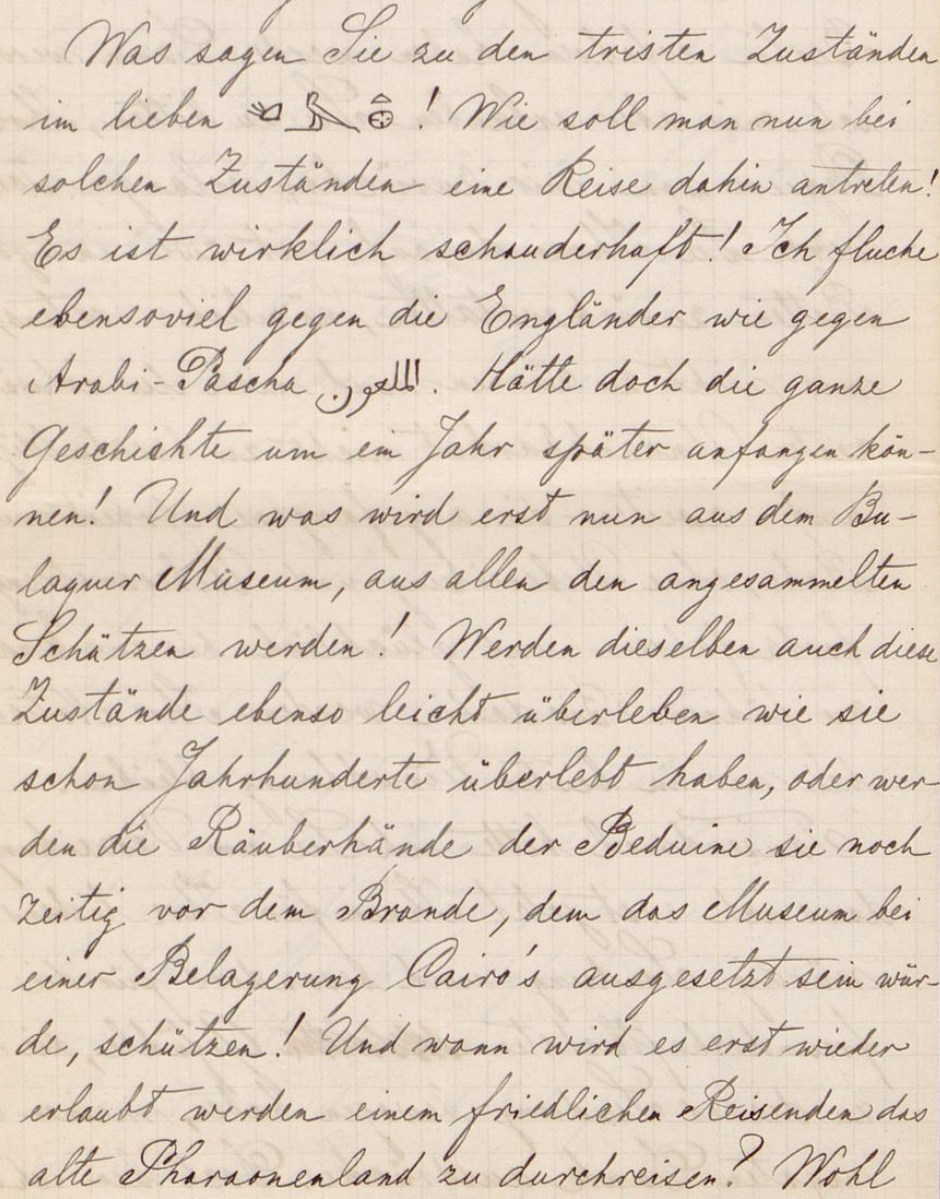 Was sagen Sie zu den tristen Zuständen
im lieben 𓆎𓅓𓏏𓊖! Wie soll man nun bei
solchen Zuständen eine Reise dahin antreten!
Es ist wirklich schauderhaft! Ich fluche
ebensoviel gegen die Engländer wie gegen
Arabi-Pascha الملعون. Hätte doch die ganze
Geschichte um ein Jahr später anfangen kön-
nen! Und was wird erst nun aus dem Bu-
laquer Museum, aus allen den angesammelten
Schätzen werden! Werden dieselben auch diese
Zustände ebenso leicht überleben wie sie
schon Jahrhunderte überlebt haben, oder wer-
den die Räuberhände der Beduine sie noch
zeitig vor dem Brande, dem das Museum bei
einer Belagerung Cairo's ausgesetzt sein wür-
de, schützen! Und wann wird es erst wieder
erlaubt werden einem friedlichen Reisenden das
alte Pharaonenland zu durchreisen? Wohl